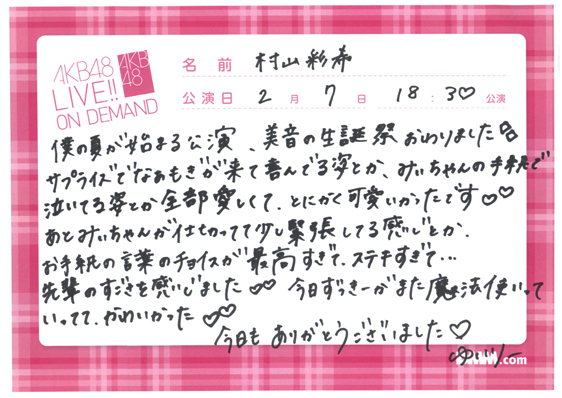 AKB48
LIVE!!
ON DEMAND
AKB
48
名前 村山彩希
公演日 2月7日 18:30公演
僕の夏が始まる公演、美音の生誕祭おわりました
サプライズでなぁもぎが来て喜んでる姿とか、みぃちゃんの手紙で
泣いてる姿とか全部愛しくて、とにかく可愛いかったです♡♡
あとみぃちゃんが仕切ってて少し緊張してる感じとか、
お手紙の言葉のチョイスが最高すぎて、ステキすぎて…
先輩のすごさを感じました♡♡ 今日ずっきーがまた魔法使いって
いってて、かわいかった♡♡
今日もありがとうございました♡
ゆいりー
.com